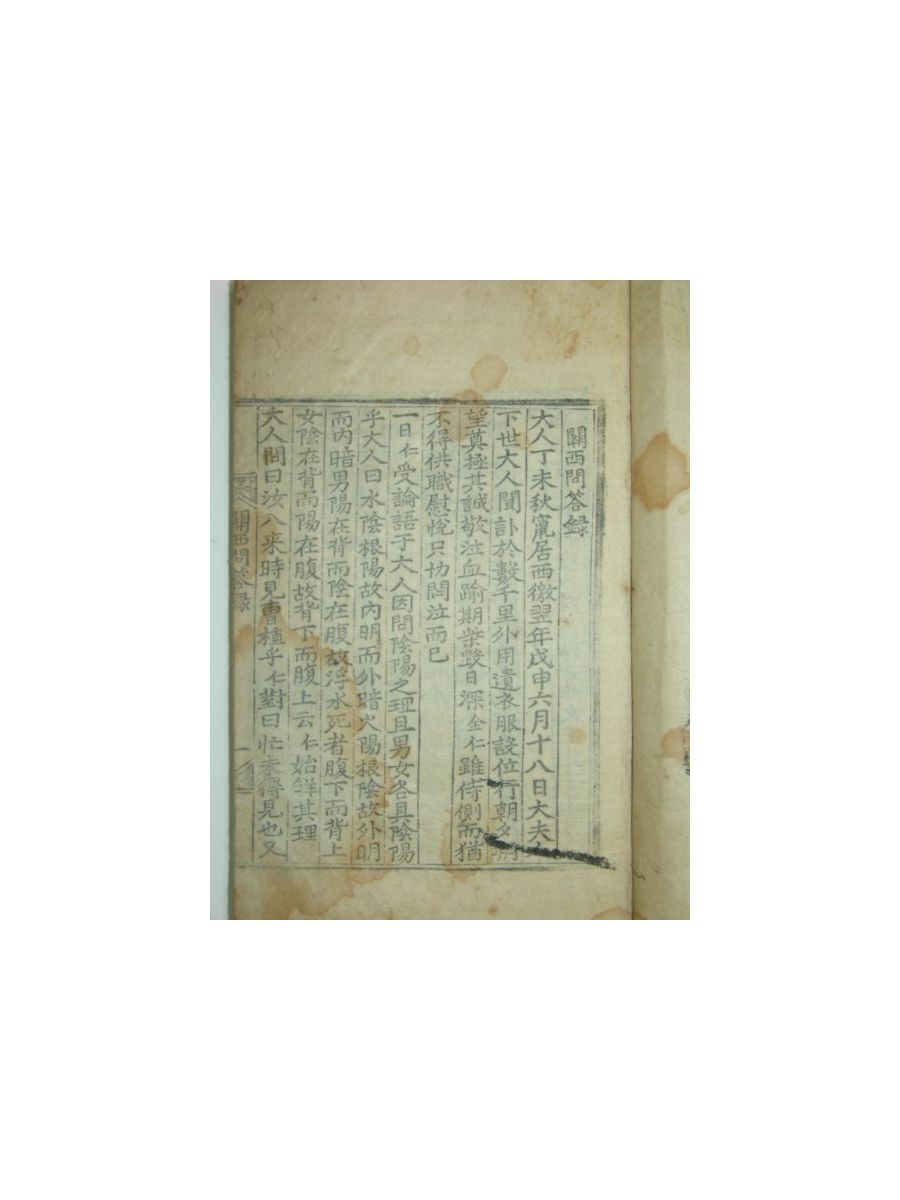 關西問答録
大人丁未秋竄居西徼翌年戊申六月十八日大夫
下世大人聞訃於數千里外用遺衣服設位行朝夕朔
望奠極其誠敬泣血踰期柴毀日深全仁雖侍側而猶
不得供職慰悅只切悶泣而已
一日仁受論語于大人因問陰陽之理且男女各具陰陽
乎大人曰水陰根陽故內明而外暗火陽根陰故外明
而內暗男陽在背而陰在腹故浮水死者腹下而背上
女陰在背而陽在腹故背下而腹上云仁始觧其理
大人問曰汝入来時見曹植乎仁對曰忙未得見也又
關西問答録
一